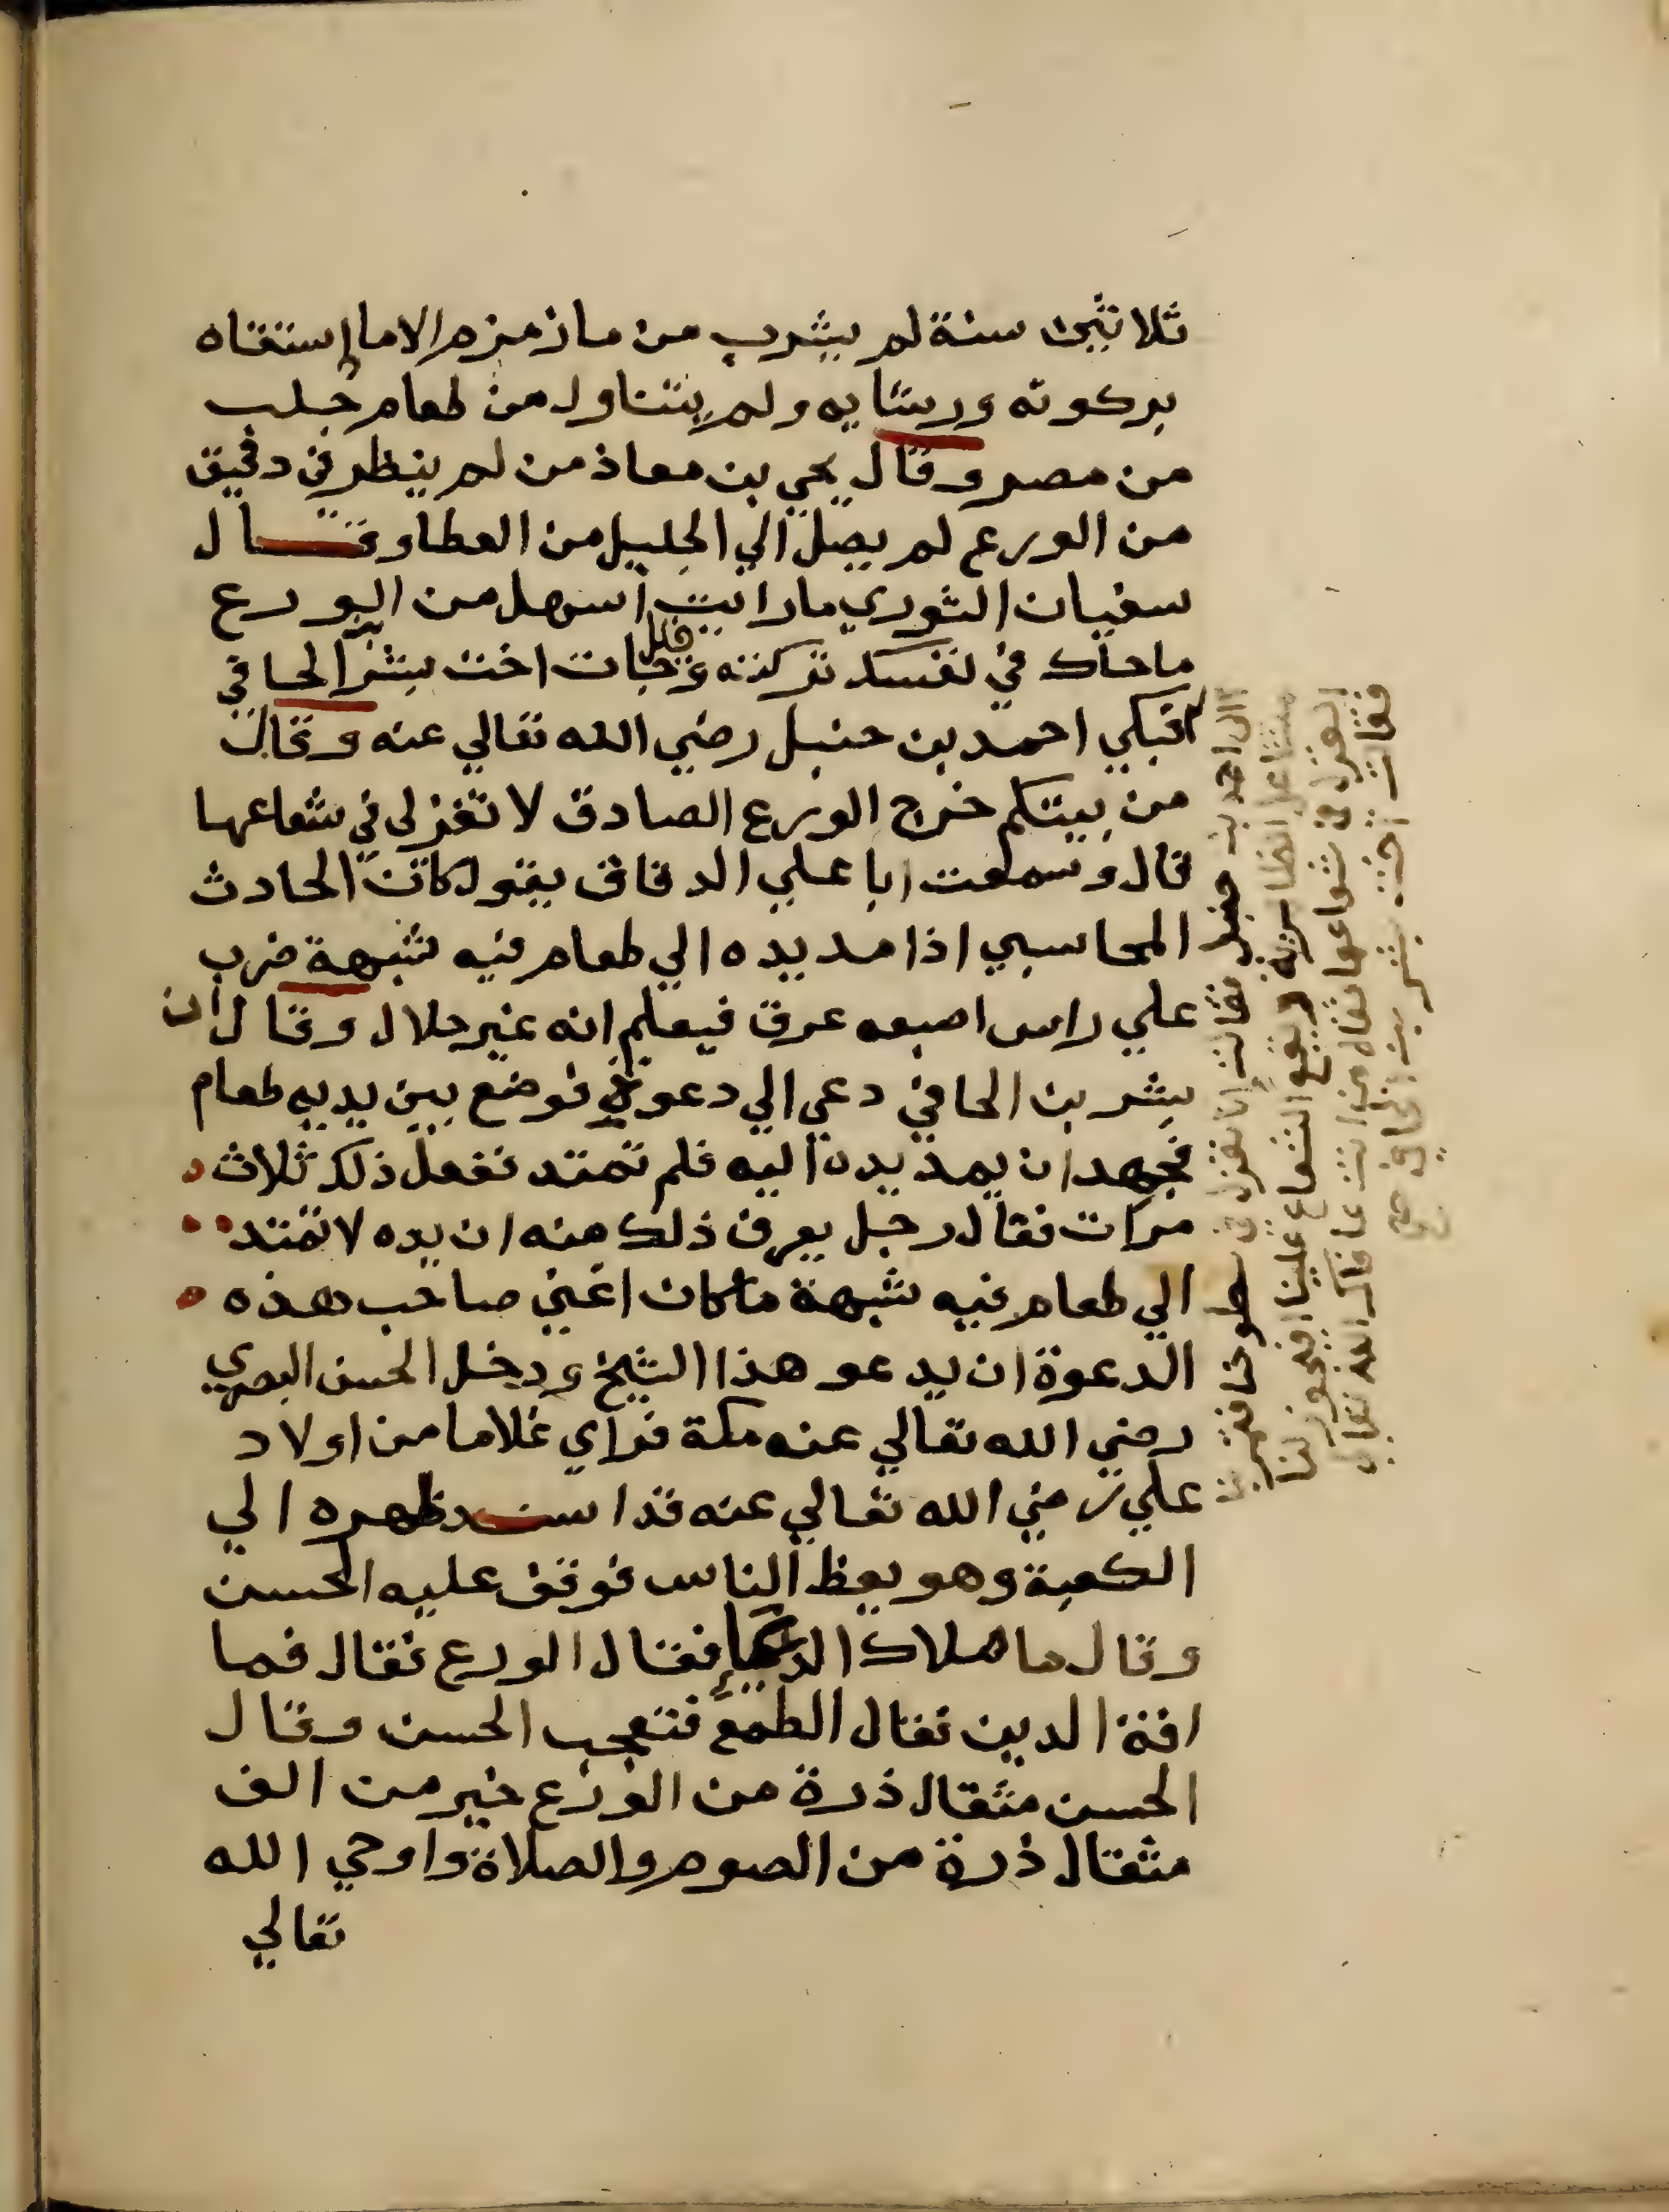 ثلاثين سنة لم يشرب من ما زمزم الا ما استقاه
بركوته ورشايه ولم يتناول من طعام جلب
من مصر وقال يحي بن معاذ من لم ينظر في دقيق
من الورع لم يصل الي الجليل من العطا وقال
سفيان الثوري ما رايت اسهل من الورع
ما حاك في نفسك تركته وقيل جات اخت بشر الحافي
فبكي احمد بن حنبل رضي الله تعالي عنه وقال
من بيتكم خرج الورع الصادق لا تغزلي في شعاعها
قال وسمعت ابا علي الدقاق يقول كان الحارث
المحاسبي اذا مد يده الي طعام فيه شبهة ضرب
علي راس اصبعه عرق فيعلم انه غير حلال وقال ان
بشر بن الحافي دعي الي دعوة فوضع بين يديه طعام
فجهد ان يمد يده اليه فلم تمتد ففعل ذلك ثلاث
مرات فقال رجل يعرف ذلك منه ان يده لا تمتد
الي طعام فيه شبهة ما كان اغني صاحب هذه
الدعوة ان يدعو هذا الشيخ ودخل الحسن البصري
رضي الله تعالي عنه مكة فراي غلاما من اولاد
علي رضي الله تعالي عنه قد اسند ظهره الي
الكعبة وهو يعظ الناس فوقف عليه الحسن
وقال ما ملاك الدين فقال الورع فقال فما
افة الدين فقال الطمع فتعجب الحسن وقال
الحسن مثقال ذرة من الورع خير من الف
مثقال ذرة من الصوم والصلاة واوحي الله
تعالي
الي احمد بن حنبل فقالت انا نغزل في سطوحنا فتمر بنا
مشاعل الظاهرية ويقع الشعاع علينا افيجوز لنا
الغزل في شعاعها فقال من انت عافاك الله تعالي
فقالت اخت بشر بن الحافي صح